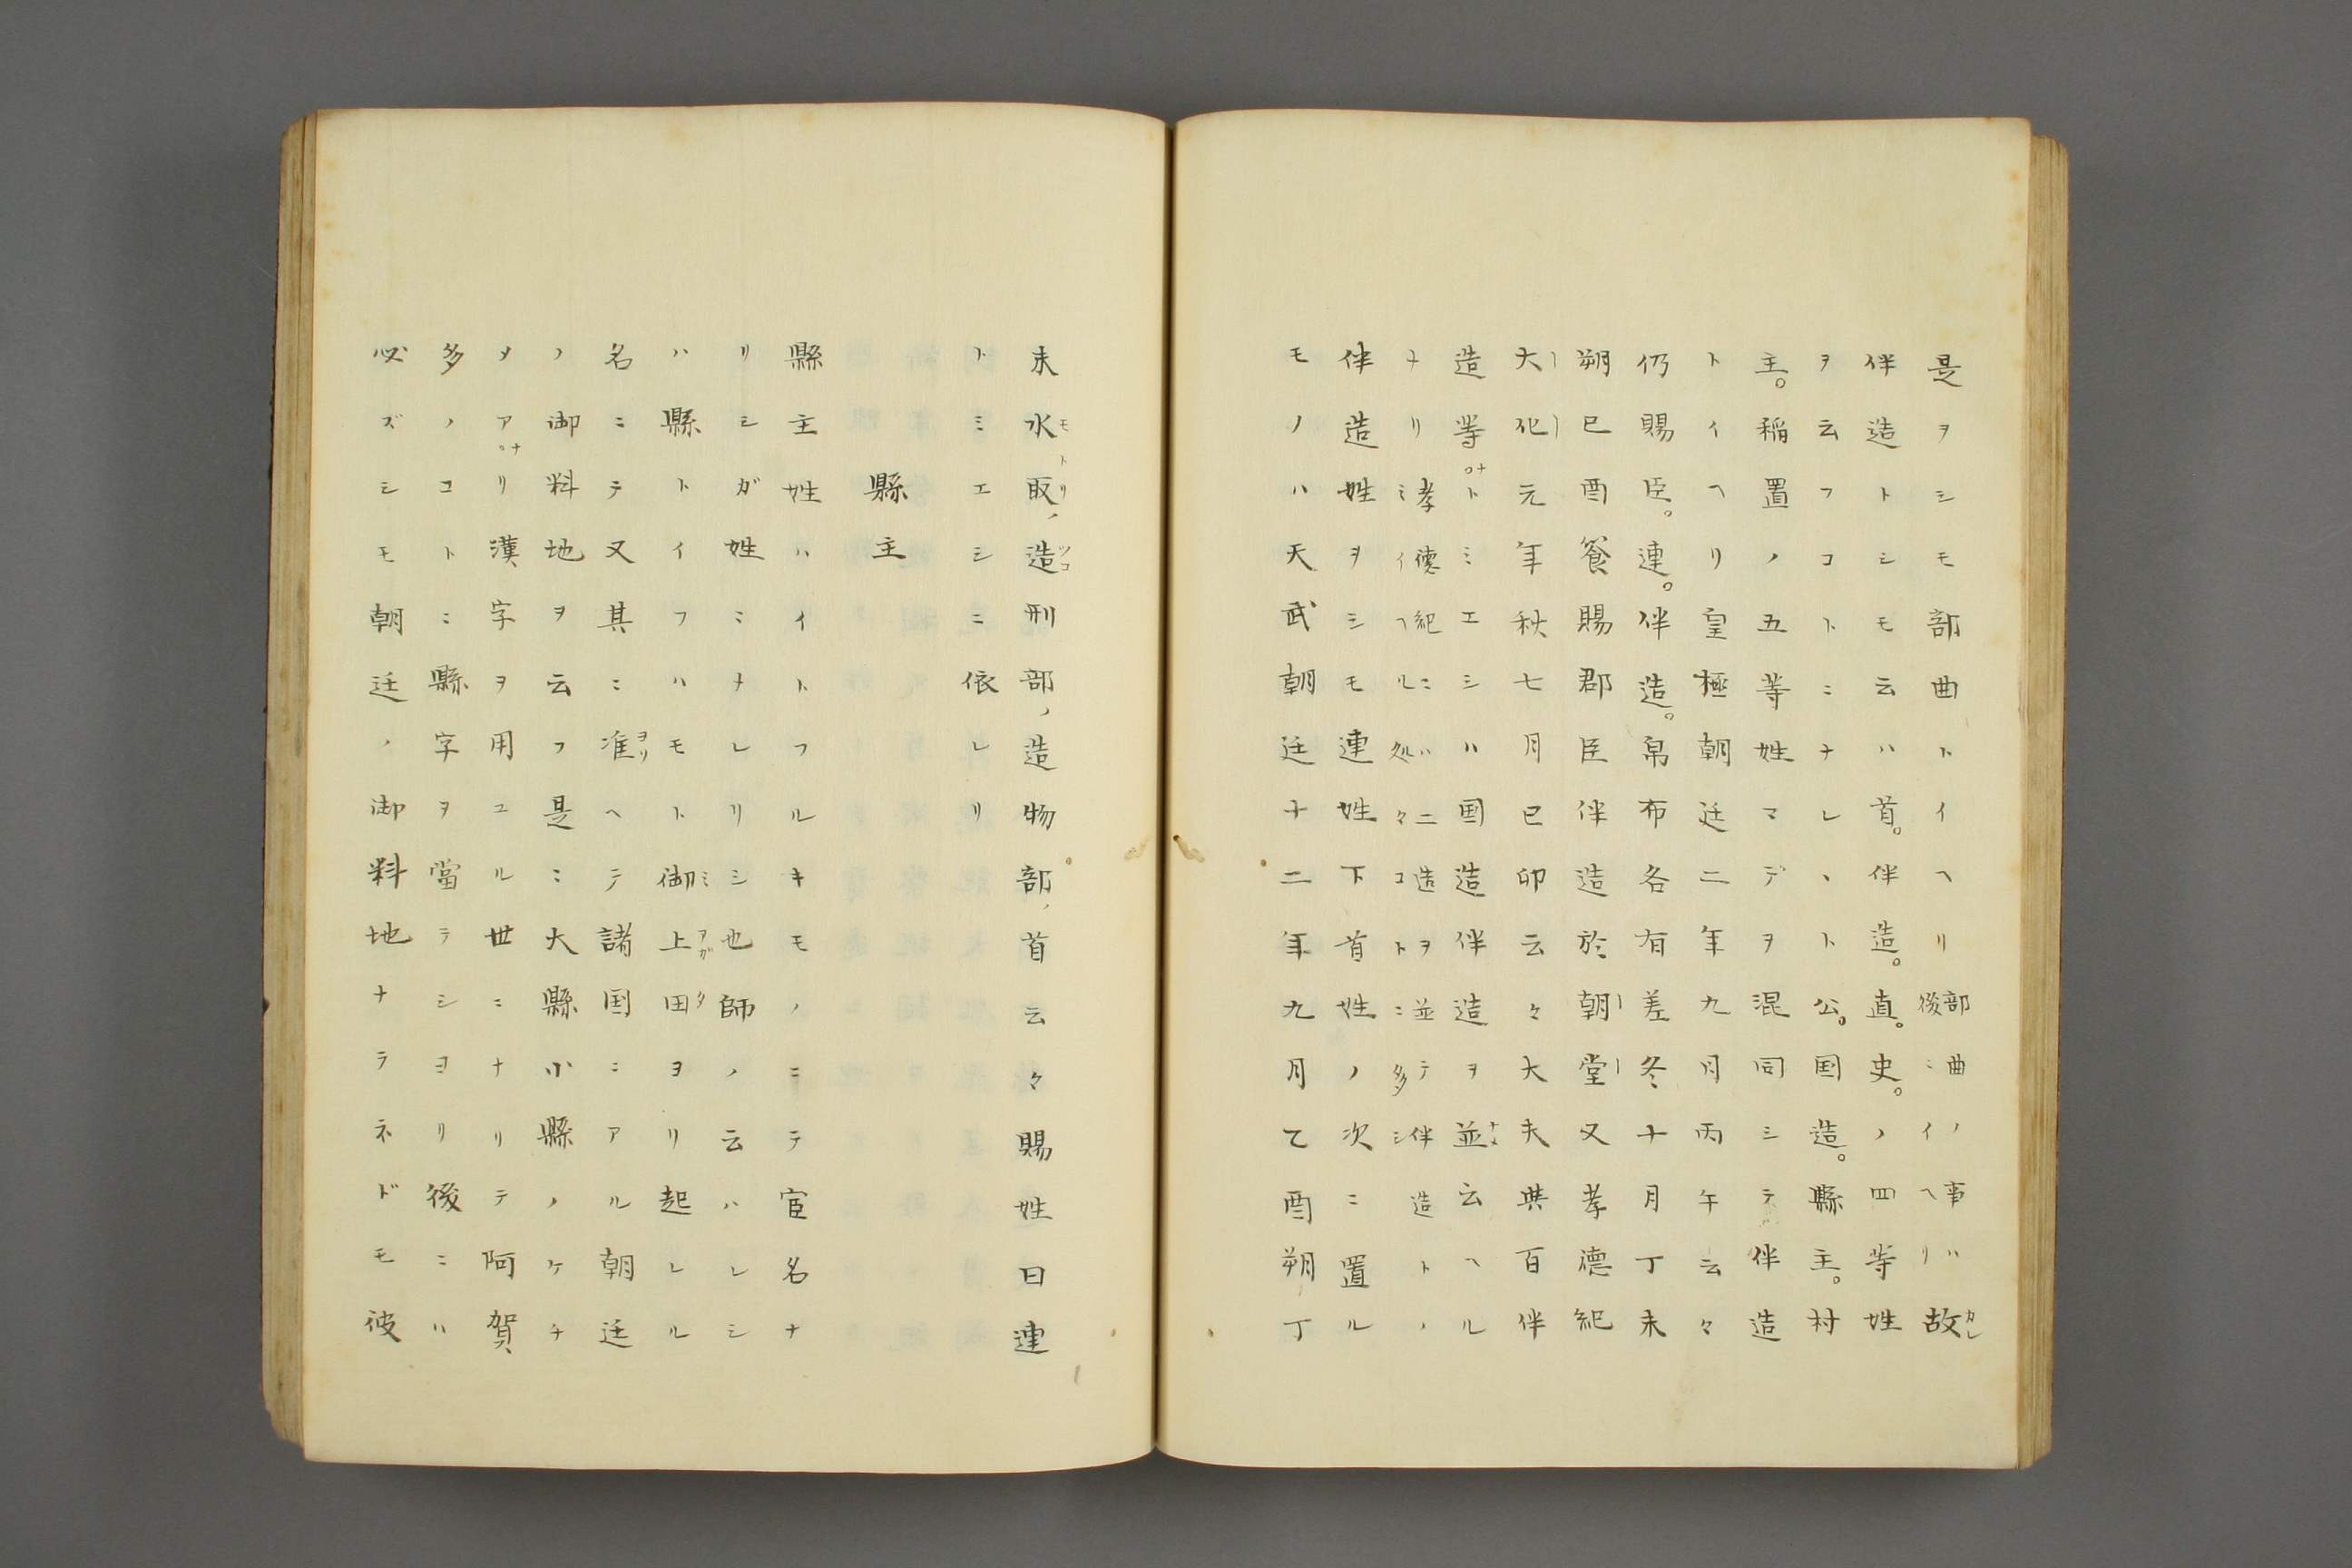 是ヲシモ部曲トイヘリ部曲ノ事ハ後ニイヘリ故カレ
伴造トシモ云ハ首。伴造。直。史。ノ四等姓
ヲ云フコトニナレヽト公。国造。縣主。村
主。稲置ノ五等姓マデヲ混同シテ伴造
トイヘリ皇極朝廷二年九月丙午云々
仍賜臣。連。伴造。帛布各有差冬十月丁未
朔巳酉餐賜郡臣伴造於朝堂又孝德紀
大化元年秋七月巳卯云々大夫與百伴
造等ナトミエシハ国造伴造ヲ並ナヘ云ヘル
ナリ孝德紀ニハ二造ヲ並テ伴造トノミイヘル処々コトニ多シ
伴造姓ヲシモ連姓下首姓ノ次ニ置ル
モノハ天武朝廷十二年九月乙酉朔丁
未水取モトリ造ツコ刑部造物部首云々賜姓曰連
トミエシニ依レリ
縣主
縣主姓ハイトフルキモノニテ宦名ナ
リシガ姓ミナレリシ也師ノ云ハレシ
ハ縣トイフハモト御ミ上アガ田タヨリ起レル
名ニテ又其ニ准ヲリヘテ諸国ニアル朝廷
ノ御料地ヲ云フ是ニ大縣小縣ノケチ
メアナリ漢字ヲ用ユル世ニナリテ阿賀
多ノコトニ縣字ヲ當テシヨリ後ニハ
必ズシモ朝廷ノ御料地ナラネドモ彼